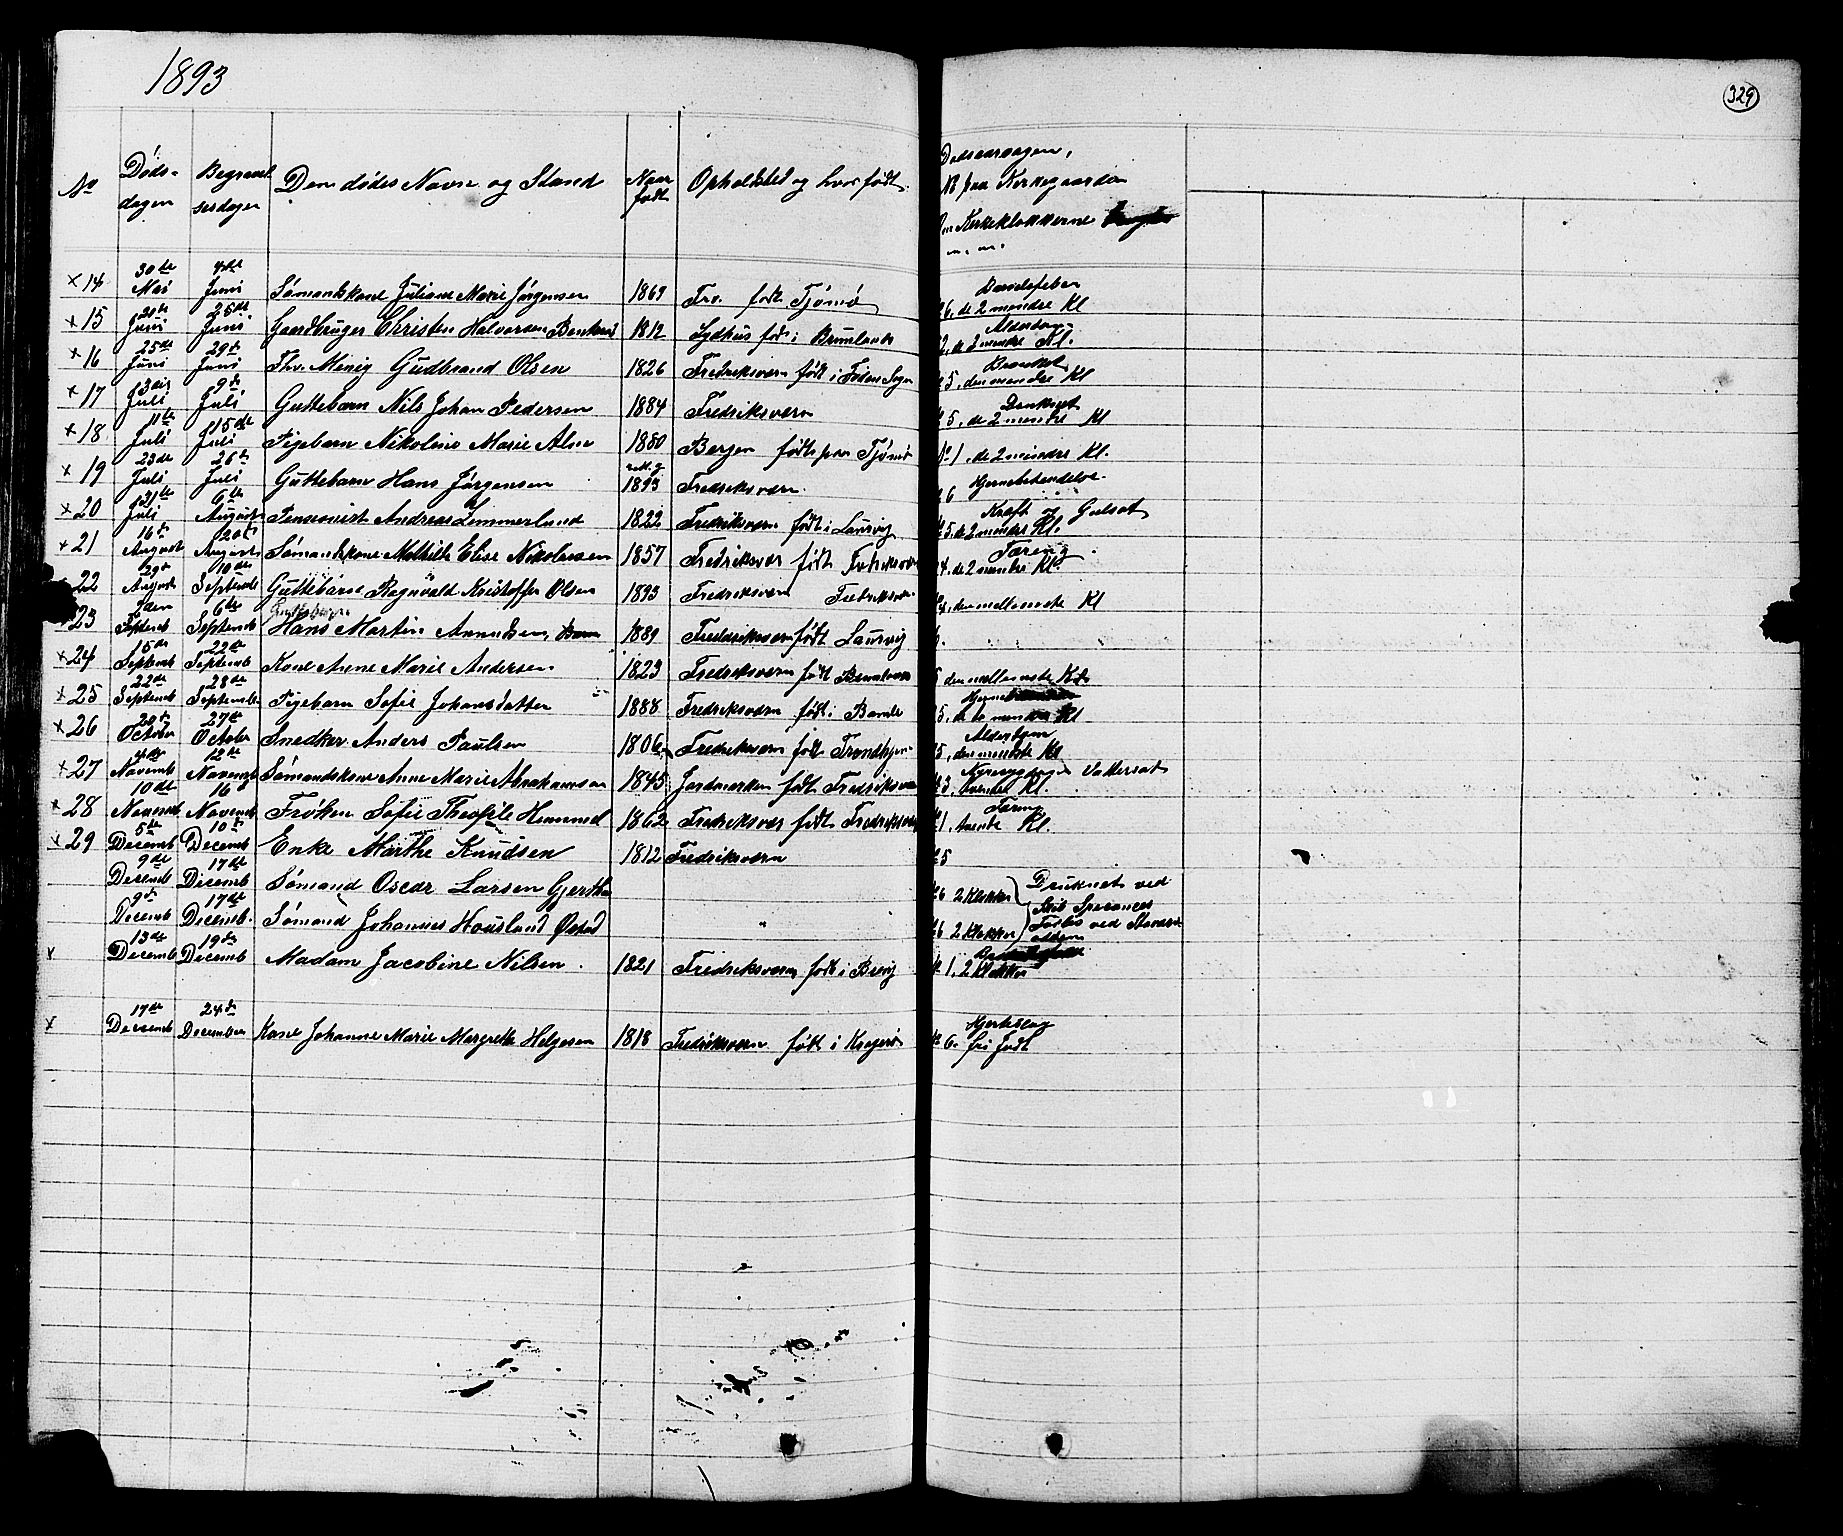 1893
329
No Døds- dagen Begravel sesdagen Den dødes Navn og Stand Naar født Opholdsted og hvor født Dødsaarsagen,
No paa Kirkegaarden
Om Kirkeklokkerne
m. m.
× 14 30de Mai 4de Juni Sømandskone Juliane Marie Jørgensen 1869 Frv. født Tjømø Barselfeber 6. de 2 mindre Kl
× 15 20de Juni 25de Juni Gaardbruger Christen Halvorsen 1812 født i Brunlanes 2. de 2 mindre Kl.
× 16 25de Juni 29de Juni Gudbrand Olsen 1826 Fredriksværn født i 5. den mindre Kl
× 17 3die Juli 9de Juli Guttebarn Nils Johan Pedersen 1884 Fredriksværn 5. de 2 mindre Kl
× 18 11te Juli 15de Juli Pigebarn Nikoline Marie 1880 Bergen født paa Tjømø No 1. de 2 mindre Kl.
× 19 23de Juli 26de Juli Guttebarn Hans Jørgensen 1893 Fredriksværn 6 Hjernebetændelse
× 20 31te Juli 6te August Pensionist Andreas Lemmerlund 1822 Fredriksværn født i Laurvig Kræft og Gulsot 5. de 2 mindre Kl.
× 21 16de August 20de August Sømandskone Mathilde Elise Nikolaisen 1857 Fredriksværn født Fredriksværn Tæring 4. de 2 mindre Kl.
22 29de August 10de September Guttebarn Ragnvald Kristoffer Olsen 1893 Fredriksværn Fredriksværn 4. den mellemste Kl
23 2den Septemb 6te Septemb Guttebarn Hans Martin Amundsen 1889 Fredriksværn født Laurvig
× 24 15de Septemb 22de Septemb Kone Anne Marie Andersen 1823 Fredriksværn født den mellemste Kl
× 25 22de Septemb 28de September Pigebarn Sofie Johansdatter 1888 Fredriksværn født i Bamle 5. de to mindre Kl
× 26 20de October 27de October Snedker Anders Paulsen 1806 Fredriksværn født Trondhjem Alderdom 5, den mindste Kl
× 27 4de Novemb 12te Novemb Sømandskone Anne Marie Abrahamsen 1845 Jordmorken født Fredriksværn Nyresygdom Vattersot 3. Kl.
× 28 10de Novemb 16de Novemb Frøken Sofie Theofile 1862 Fredriksværn født Fredriksværn Tæring 1. Kl.
× 29 5te Decemb 10de Decemb Enke Marthe Knudsen 1812 Fredriksværn 5
9de Decemb 17de Decemb Sømand Oscar Larsen 6 2 Klokker Druknet ved
9de Decemb 17de Decemb Sømand Johannes " 6 2 Klokker Skib Sperances Forlis ved
× 13de Decemb 19de Decemb Madam Jacobine Nilsen 1821 Fredriksværn født i Brevig No 1. 2 Klokker
× 17de Decemb 24de December Kone Johanne Marie Margrethe Helgesen 1818 Fredriksværn født i Kragerø Hjerteslag 6. fri Jord